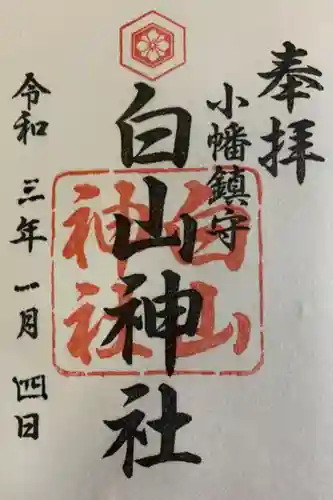 奉拝
小幡鎮守
白山神社
白山神社
令和三年一月四日